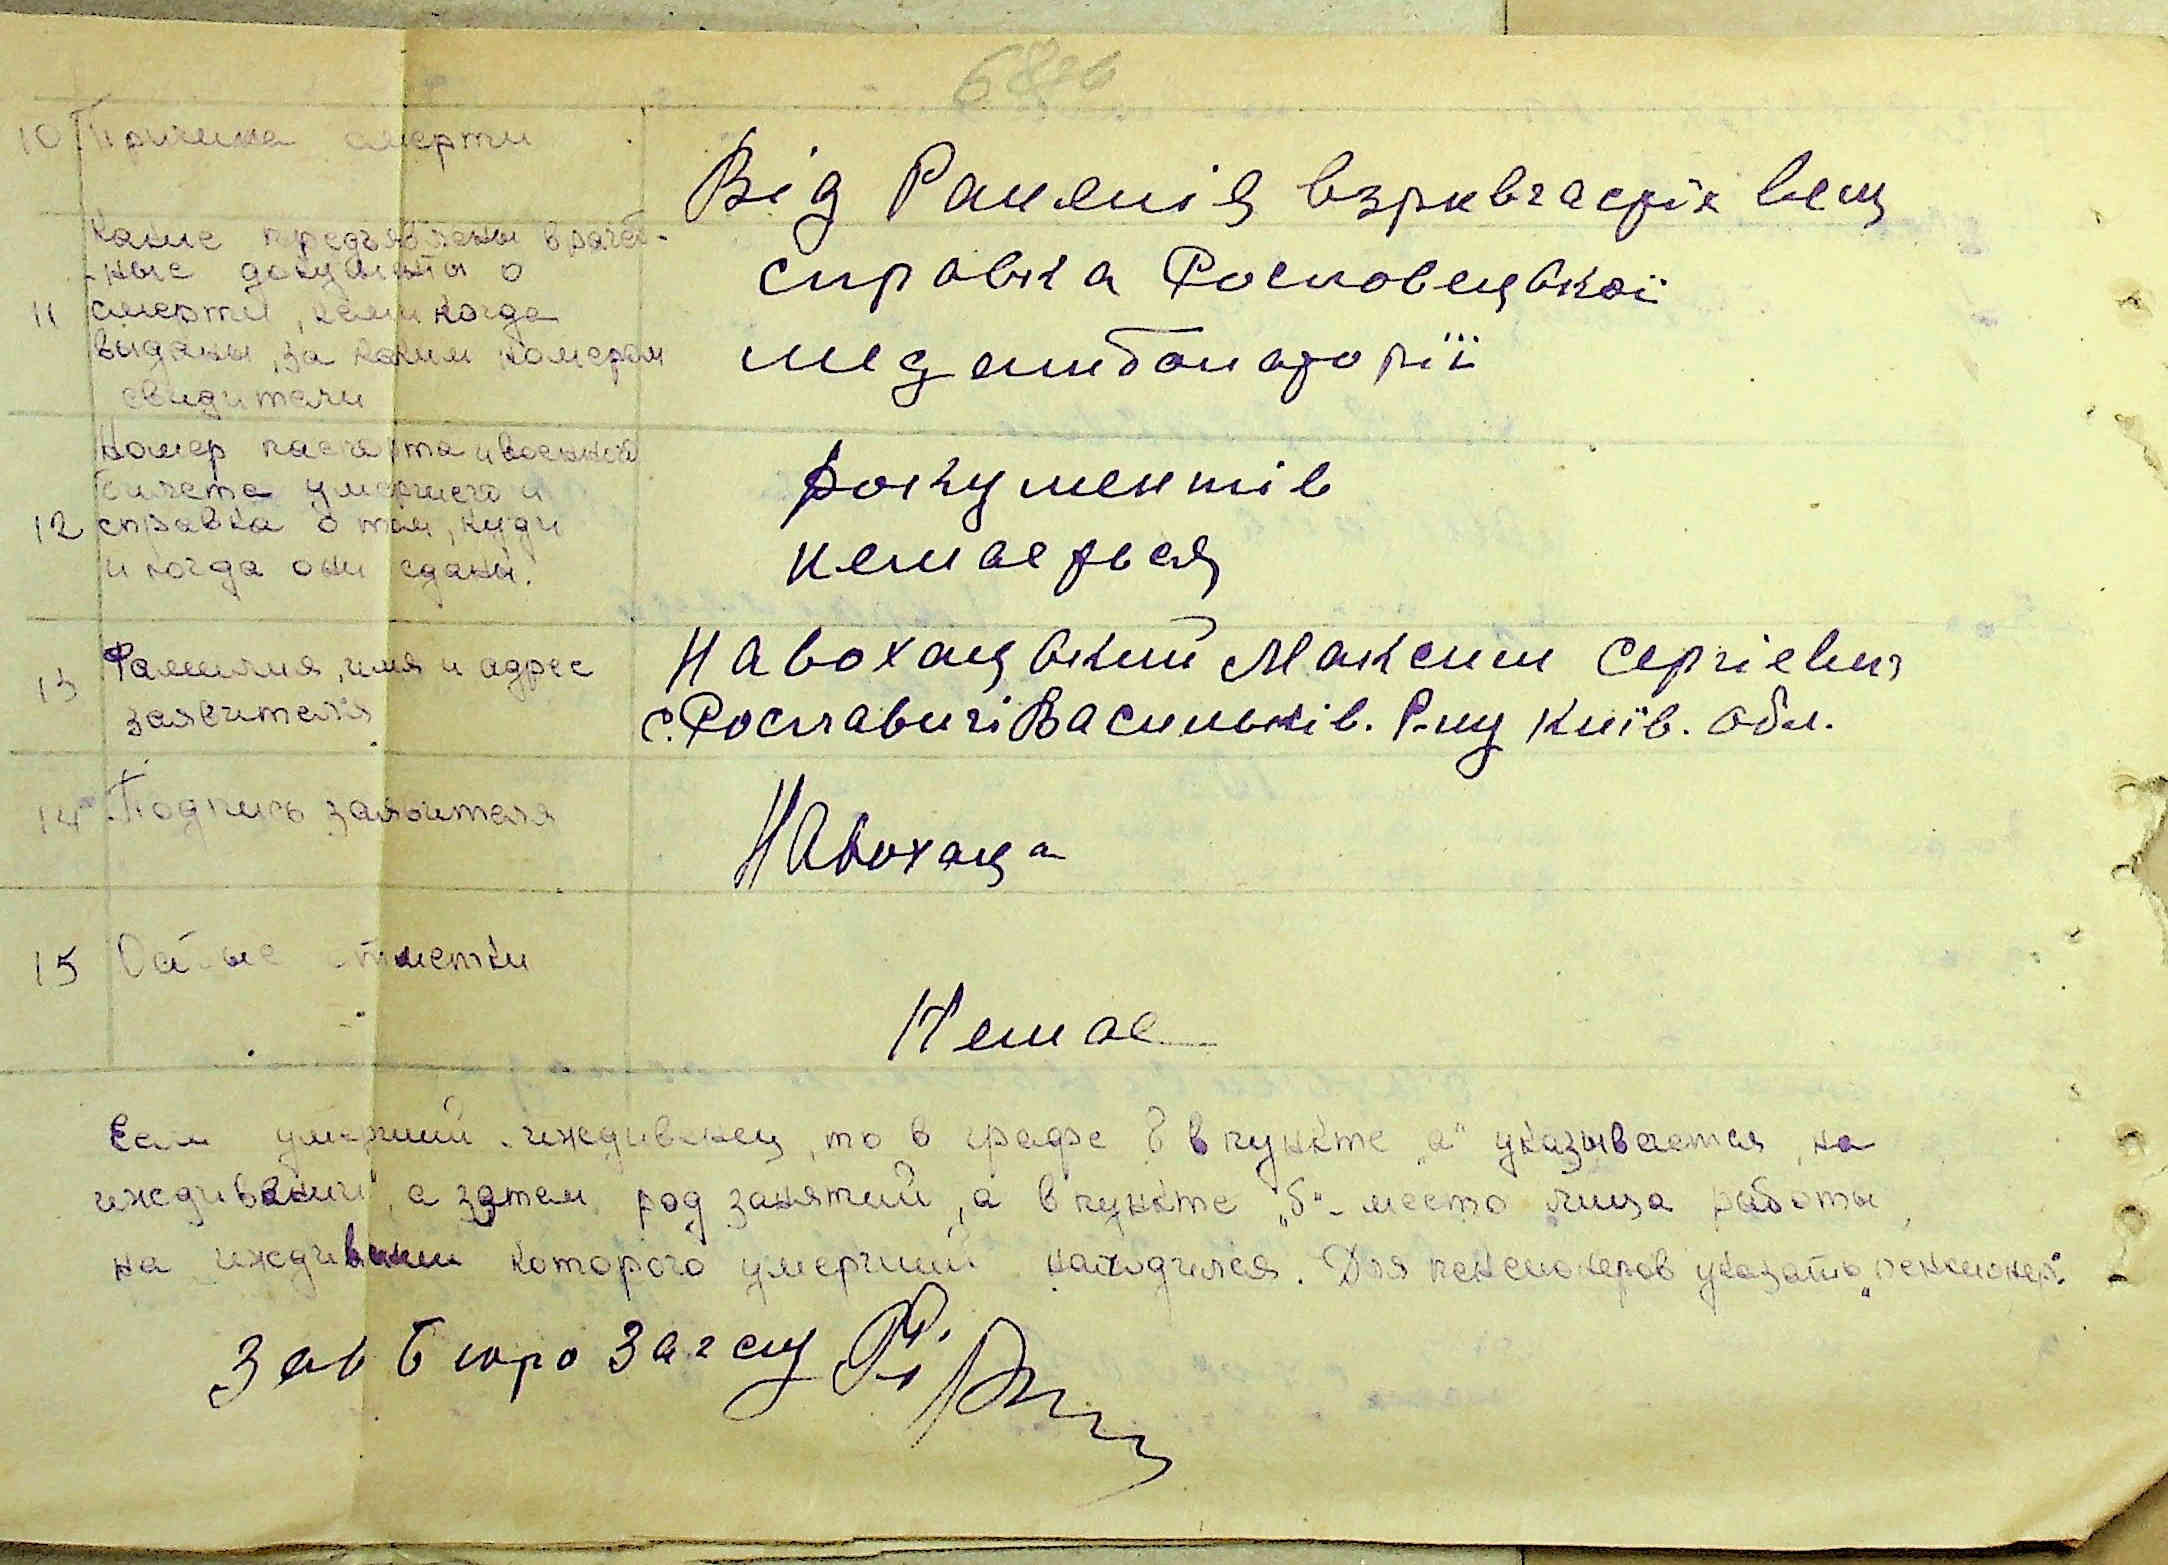 68об
10 Причина смерти
Від Раненія взривчастіх вещ
Какие предъявлены врачеб-
-ные документы о
11 смерти, кем и когда
выданы, за каким номером
свидители
справка Росповецької
медамбонаторії
Номер паспорта и военной
билета умершего и
12 справка о том, куди
и когда они сданы.
Рокументів
немаерься
13 Фамилия, имя и адрес
заявителя
Навохацький Максим Сергіевич
с. Рославичі Васильків. Р-ну Київ. Обл.
14 Подпись заявителя
Навохаца
15 Особые отметки
Немає
Если умерший иждивенец, то в графе 8 в пункте „а" указывается „на
иждивении", а затем род занятий, а в пункте „б" - место лица работы,
на иждивении которого умерший находился. Для пенсионеров указать „пенсионер".
Зав Бюро Загсу